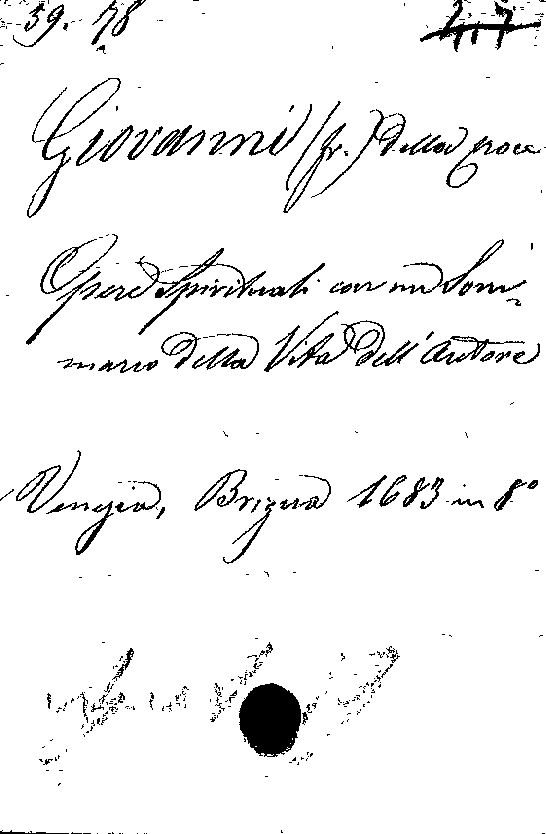 39. 78
Giovanni (fr.) della Croce
Opere Spirituali con un Som-
mario della Vita dell'Autore
Venezia, Brigna 1683 in 8º